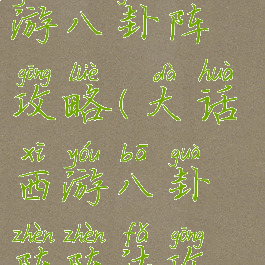 游八卦阵
gōng lüè dà huà
攻略(大话
xī yóu bā guà
西游八卦
zhèn zhèn fǎ gōng
阵阵法攻